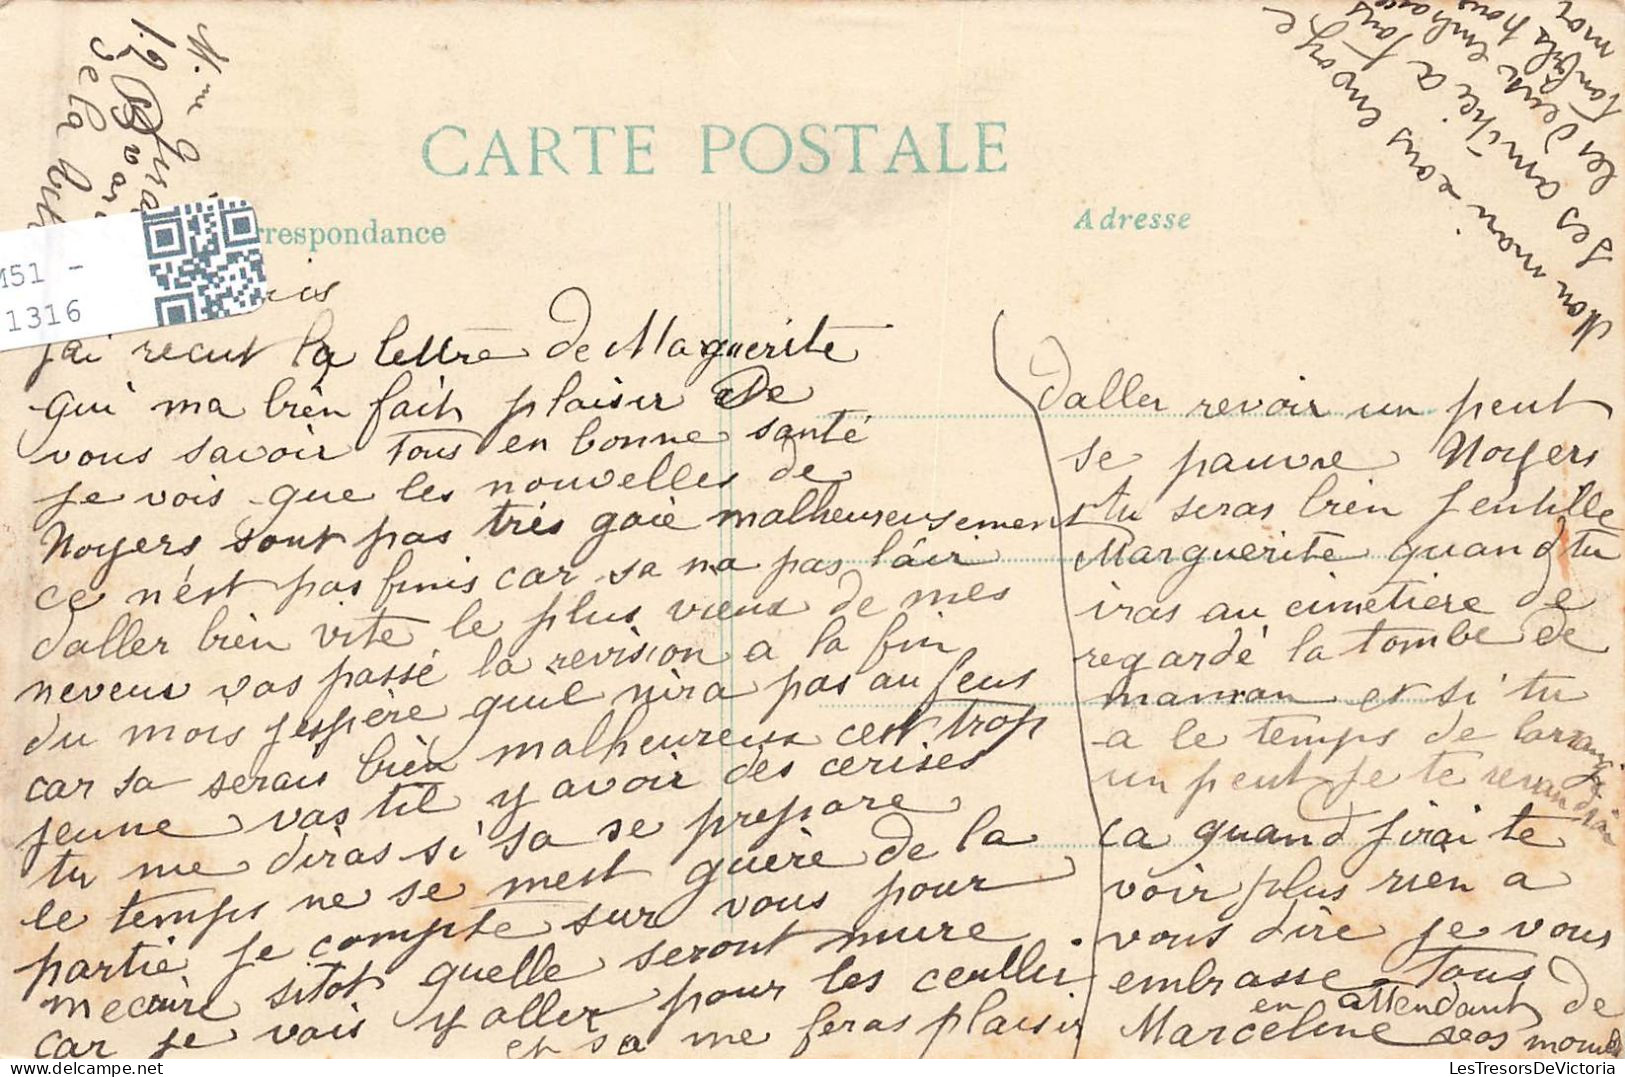 CARTE POSTALE
rrespondance
Adresse
M51 -
1316
ris
jai recut la lettre de Marguerite
qui ma bien fait plaisir De
vous savoir tous en bonne santé
je vois que les nouvelles de
Noyers sont pas très gaie malheureusement
ce n'est pas finis car sa na pas l'air
daller bien vite le plus vieux de mes
neveux vas passé la revision a la fin
du mois jespère quil nira pas au feus
car sa serais bien malheureux cest trop
jeune vas til y avoir des cerises
tu me diras si sa se prepare
le temps ne se mest guère de la
partie je compte sur vous pour
mecrire sitot quelle seront mure
car je vois y aller pour les ceullir
et sa me feras plaisir
daller revoir un peut
se pauvre Noyers
tu seras bien jentille
Marguerite quand tu
iras au cimetiere de
regardé la tombe de
maman et si tu
a le temps de larrangé
un peut je te revandrai
ca quand jirai te
voir plus rien a
vous dire je vous
embrasse tous
en attendant de
Marceline vos
Mon mari vous envoye
ses amitié a tous
les deux
moi
Mme
12 Bvar
de la